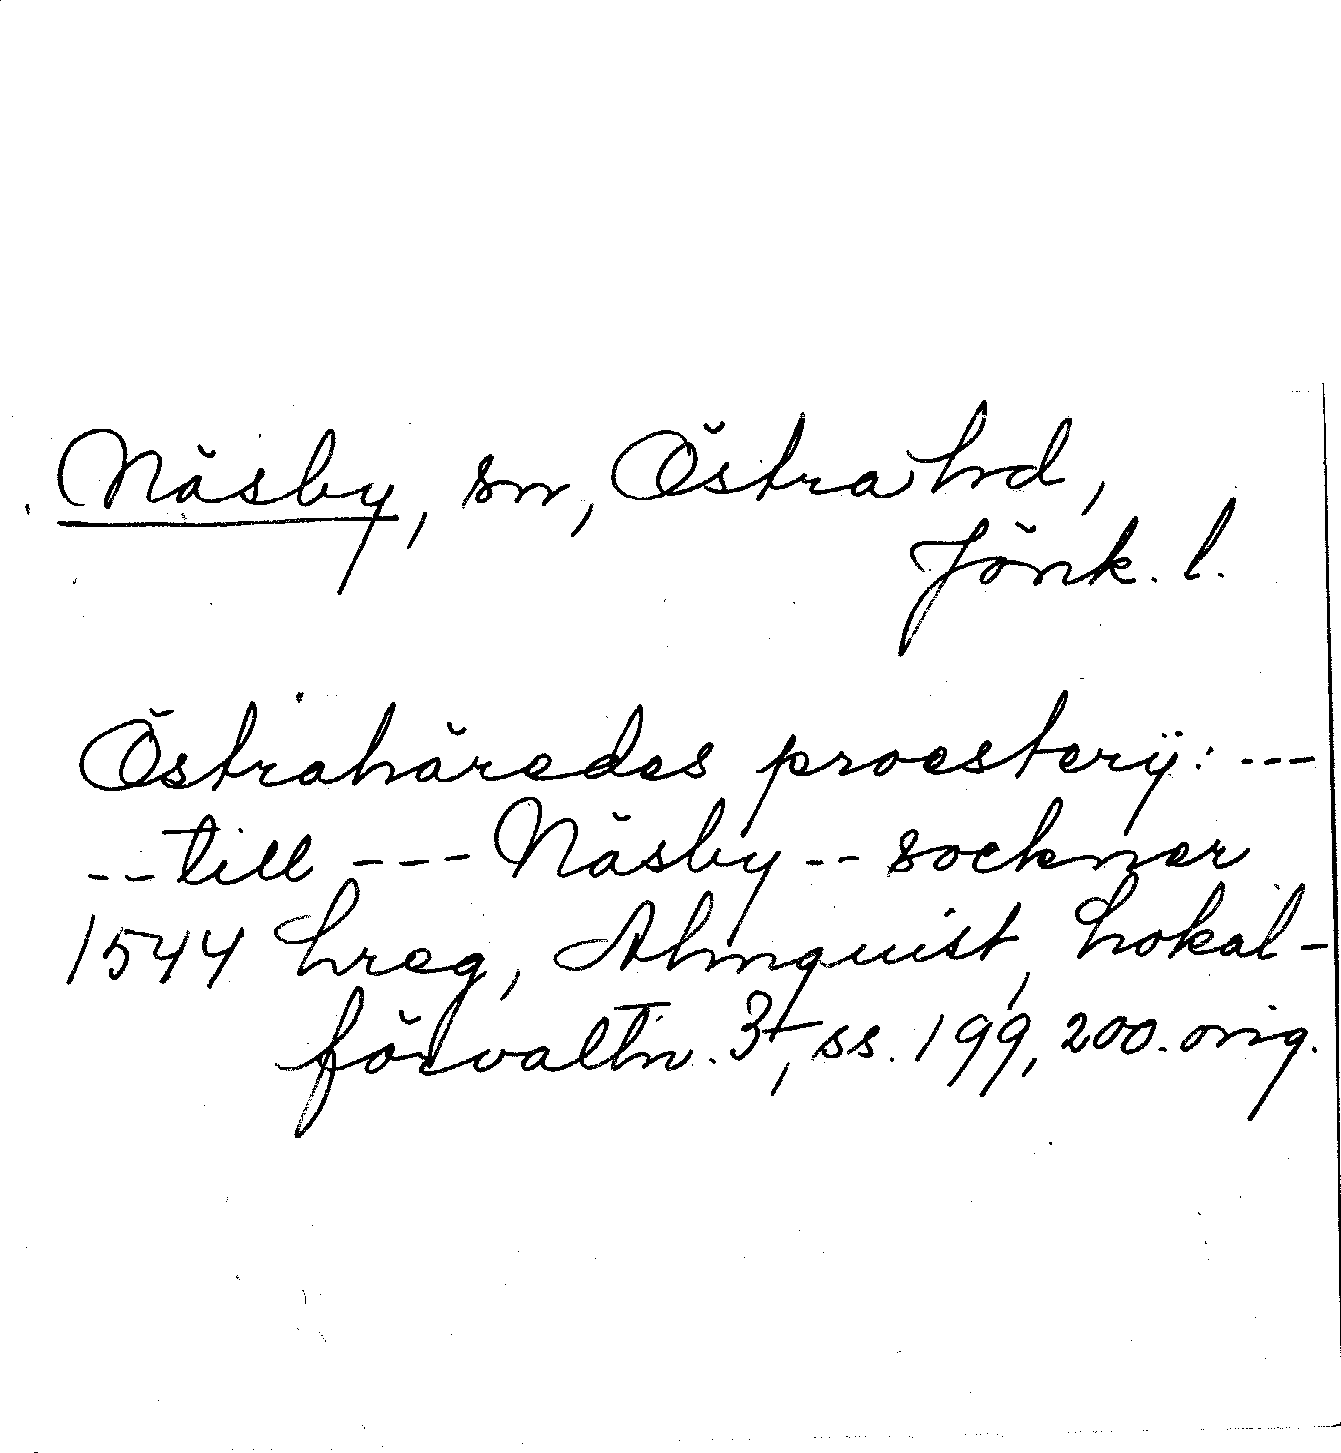 Näsby, sn, Östra hd,
Jönk. l.
Östrahäredes proesterÿ: ---
-- till --- Näsby -- sockner
1544 Lreg, Almquist, Lokal-
förvaltn. 3t, ss. 199, 200. orig.